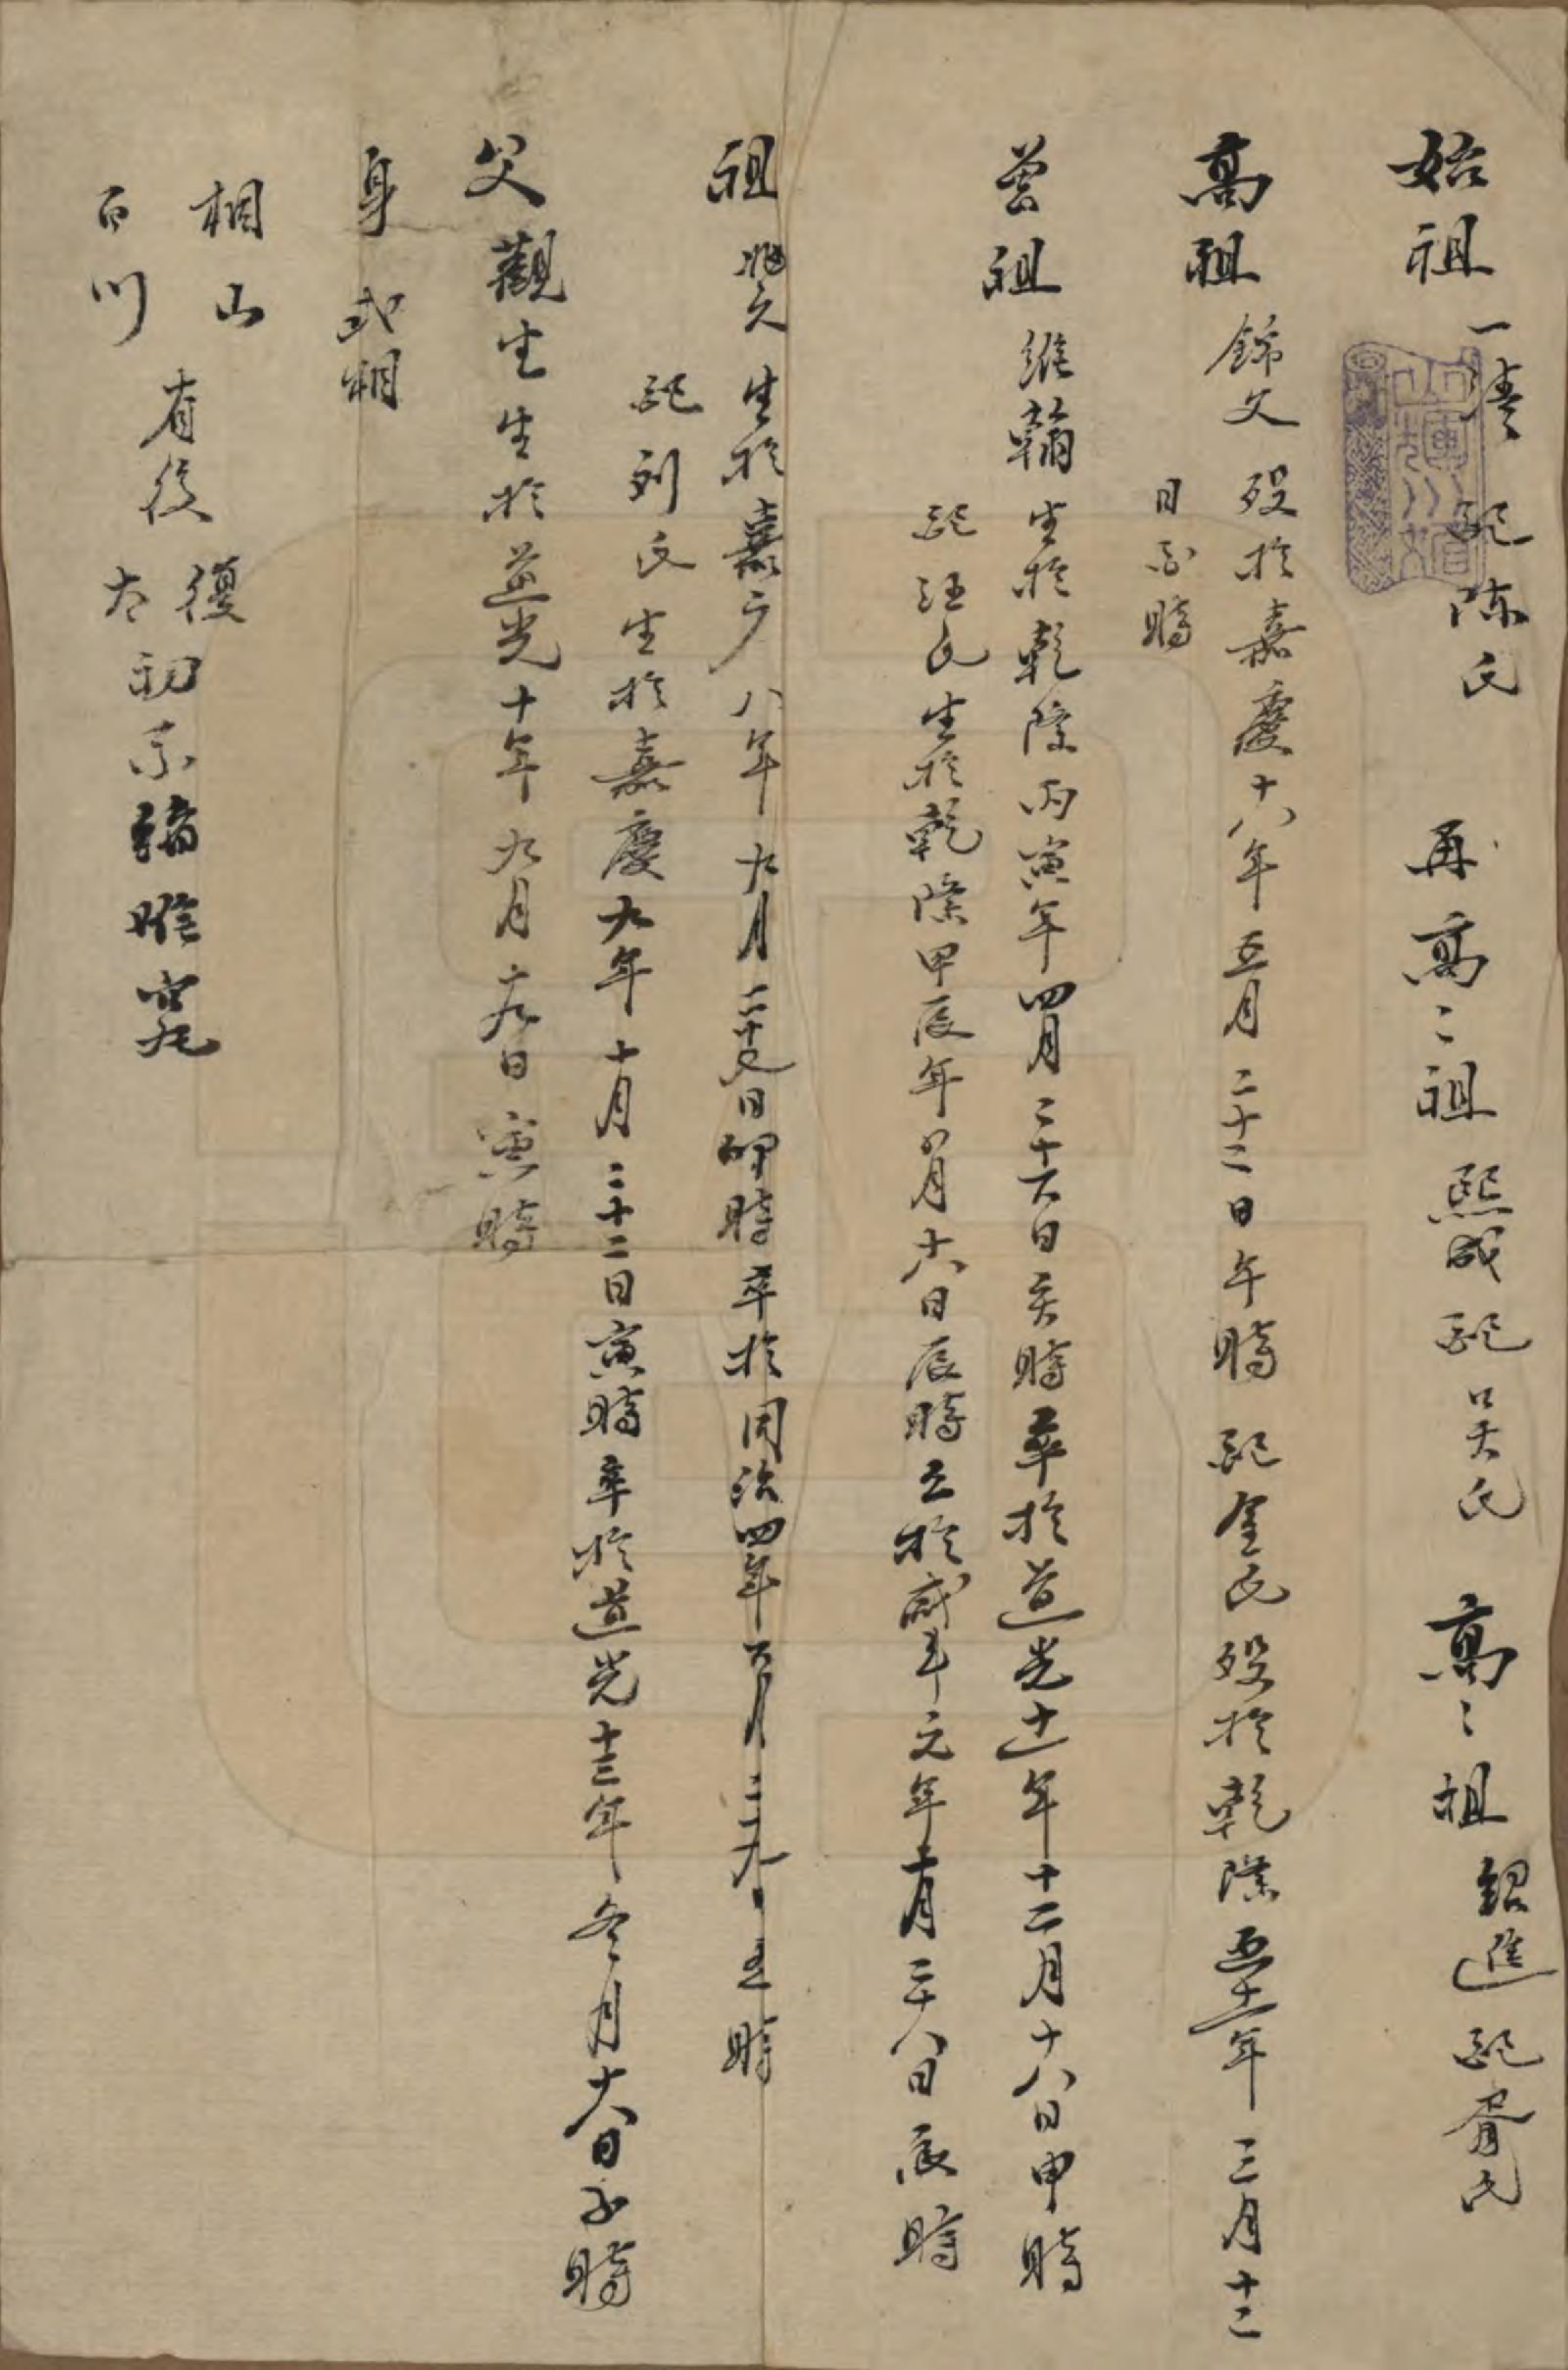 始祖一清配陈氏 再高〻祖熙成配吴氏 高〻祖紹進配胥氏
高祖錦文 殁於嘉慶十八年五月二十二日午時 配金氏殁於乾隆五十一年三月十二
日 時
曾祖維翰生於乾隆丙寅年四月二十六日亥時卒於道光十一年十二月十八日申時
配汪氏生於乾隆甲辰年八月十六日辰時 於咸丰元年十二月二十八日辰時
祖兆文生於嘉庆八年九月二十 日卯時卒於同治四年六月二十九日 時
配刘氏生於嘉慶九年十月二十二日寅時卒於道光十三年冬月十六日子時
父觀生生於道光十年九月十九日寅時
身式相
相山
百川
有後
復
太初